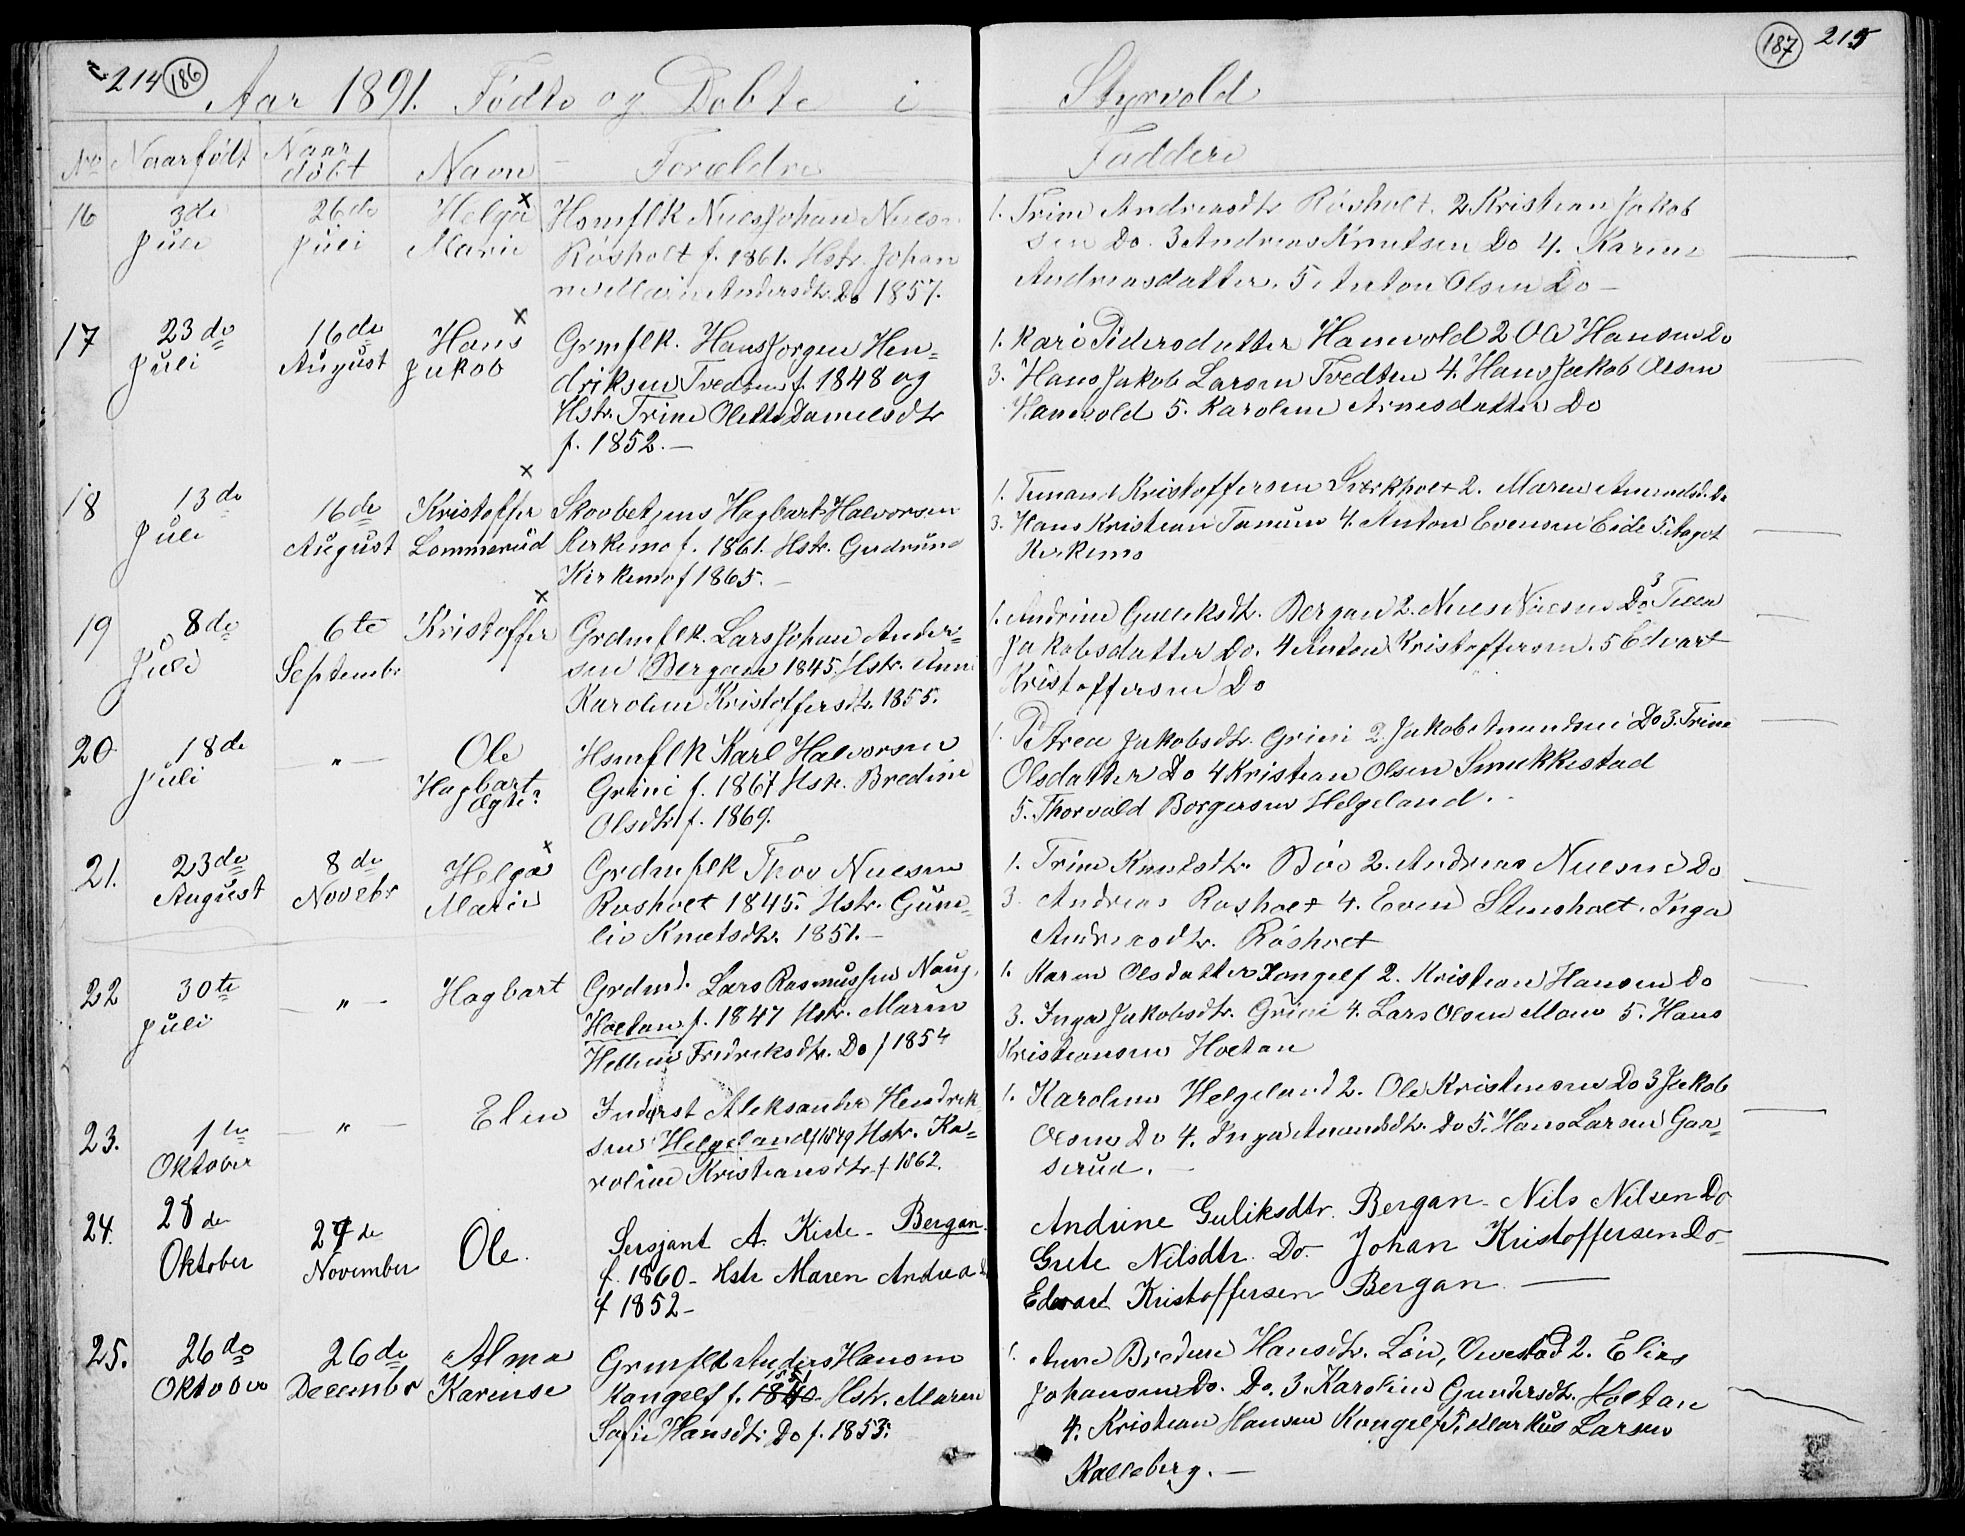 214 (186)
Aar 1891. Fødte og Døbte i
No Naar født Naar døbt Navn Forældre
16 3de Juli 26de Juli Helga Marie
Hsmflk Nuels Johan Nuels.
Røsholt f. 1861. Hstr. Johan
ne Marie Andersdtr. Do 1857.
17 23de Juli 16de August Hans Jakob
Grmflk. Hans Jorgen Hen-
driksen Tvedten f. 1848 og
Hstr. Trine Olette Danielsdtr
f. 1852. —
18 13de Juli 16de August Kristoffer Lommerud
Skovbetjens Hagbart Halvorsen
Kirkemo f. 1861. Hstr. Gudrune
Kirkemo f 1865. —
19 8de Juli 6te Septembr Kristoffer
Grdmflk. Lars Johan Ander-
sen Bergan 1845. Hstr. Anne
Karoline Kristoffersdtr. 1855.
20 18de Juli — " — Ole Hagbart Ægte?
Hsmflk Karl Halvorsen
Grini f. 1867 Hstr. Bredine
Olsdtr f. 1869.
21. 23de August 8de Novebr Helga Marie
Grdmflk Thov Nuesen
Rosholt 1845. Hstr. Gun-
lio Knutsdtr. 1851. —
22 30te Juli — " — Hagbart
Grdmd. Lars Rasmussen Naug.
Holtan f. 1847 Hstr. Maren
Helline Fredriksdtr. Do f 1854
23. 1te Oktober — " — Elen
Inderst Aleksander Hendrik
sen Helgeland f 1849 Hstr. Ka-
roline Kristiansdtr f 1862.
24. 28de Oktober 29de November Ole.
Sersjant A. Kiste - Bergan.
f. 1860 - Hstr Maren Andrea
f 1852 -
25. 26de Oktober 26de Decembr Alma Karense
Grmflk Anders Hansen
Kongelf f. 1840 1851 Hstr. Maren
Sofie Hansdtr. Do f. 1853.
(187) 215
Styrvold
Faddere
1. Trine Andreasdtr Røsholt. 2 Kristian Jakob
sen Do. 3 Andreas Knutsen Do 4. Karine
Andreasdatter. 5 Anton Olsen Do —
1. Kari Pedersdatter Hanevold 2 Ole Hansen Do
3. Hans Jakob Larsen Tvedten 4. Hans Jakob Olsen
Hanevold 5. Karoline Arnesdatter Do
1. Kristoffersen 2. Maren
3. Hans Kristian Tanum 4. Anton Evensen Eide 5. Aagot
Kirkemo
1. Andrine Gulleksdtr. Bergan 2. Nuels Nuesen Do 3 Tilla
Jakobsdatter Do. 4 Anton Kristoffersen. 5 Edvart
Kristoffersen Do
1. Petrea Jakobsdtr. Grini 2. Jakob Amundsen Do 3. Trine
Olsdatter Do 4 Kristian Olsen Smukkestad
5. Thorvald Borgersen Helgeland.
1. Trine Knutsdtr. Bøe 2. Andreas Nuesen Do
3. Andreas Rosholt 4. Even Stensholt. Inga
Andreasdtr. Røsholt
1. Karen Olsdatter Kongelf 2. Kristian Hansen Do
3. Inga Jakobsdtr. Grini 4. Lars Olsen Moen 5. Hans
Kristiansen Holtan
1. Karoline Helgeland 2. Ole Kristensen Do 3 Jakob
Olsen Do 4. Inga Amundsdtr. Do 5. Hans Larsen Gaa-
serud. —
Andrine Guliksdtr. Bergan - Nils Nilsen Do
Grete Nilsdtr. Do. Johan Kristoffersen Do
Edvard Kristoffersen Bergan. —
1. Anne Bredine Hansdtr. Løn, 2. Elias
Johansen Do. Do. 3. Karoline Gundersdtr. Holtan
4. Kristian Hansen Kongelf 5. Markus Larsen
Kalleberg. —